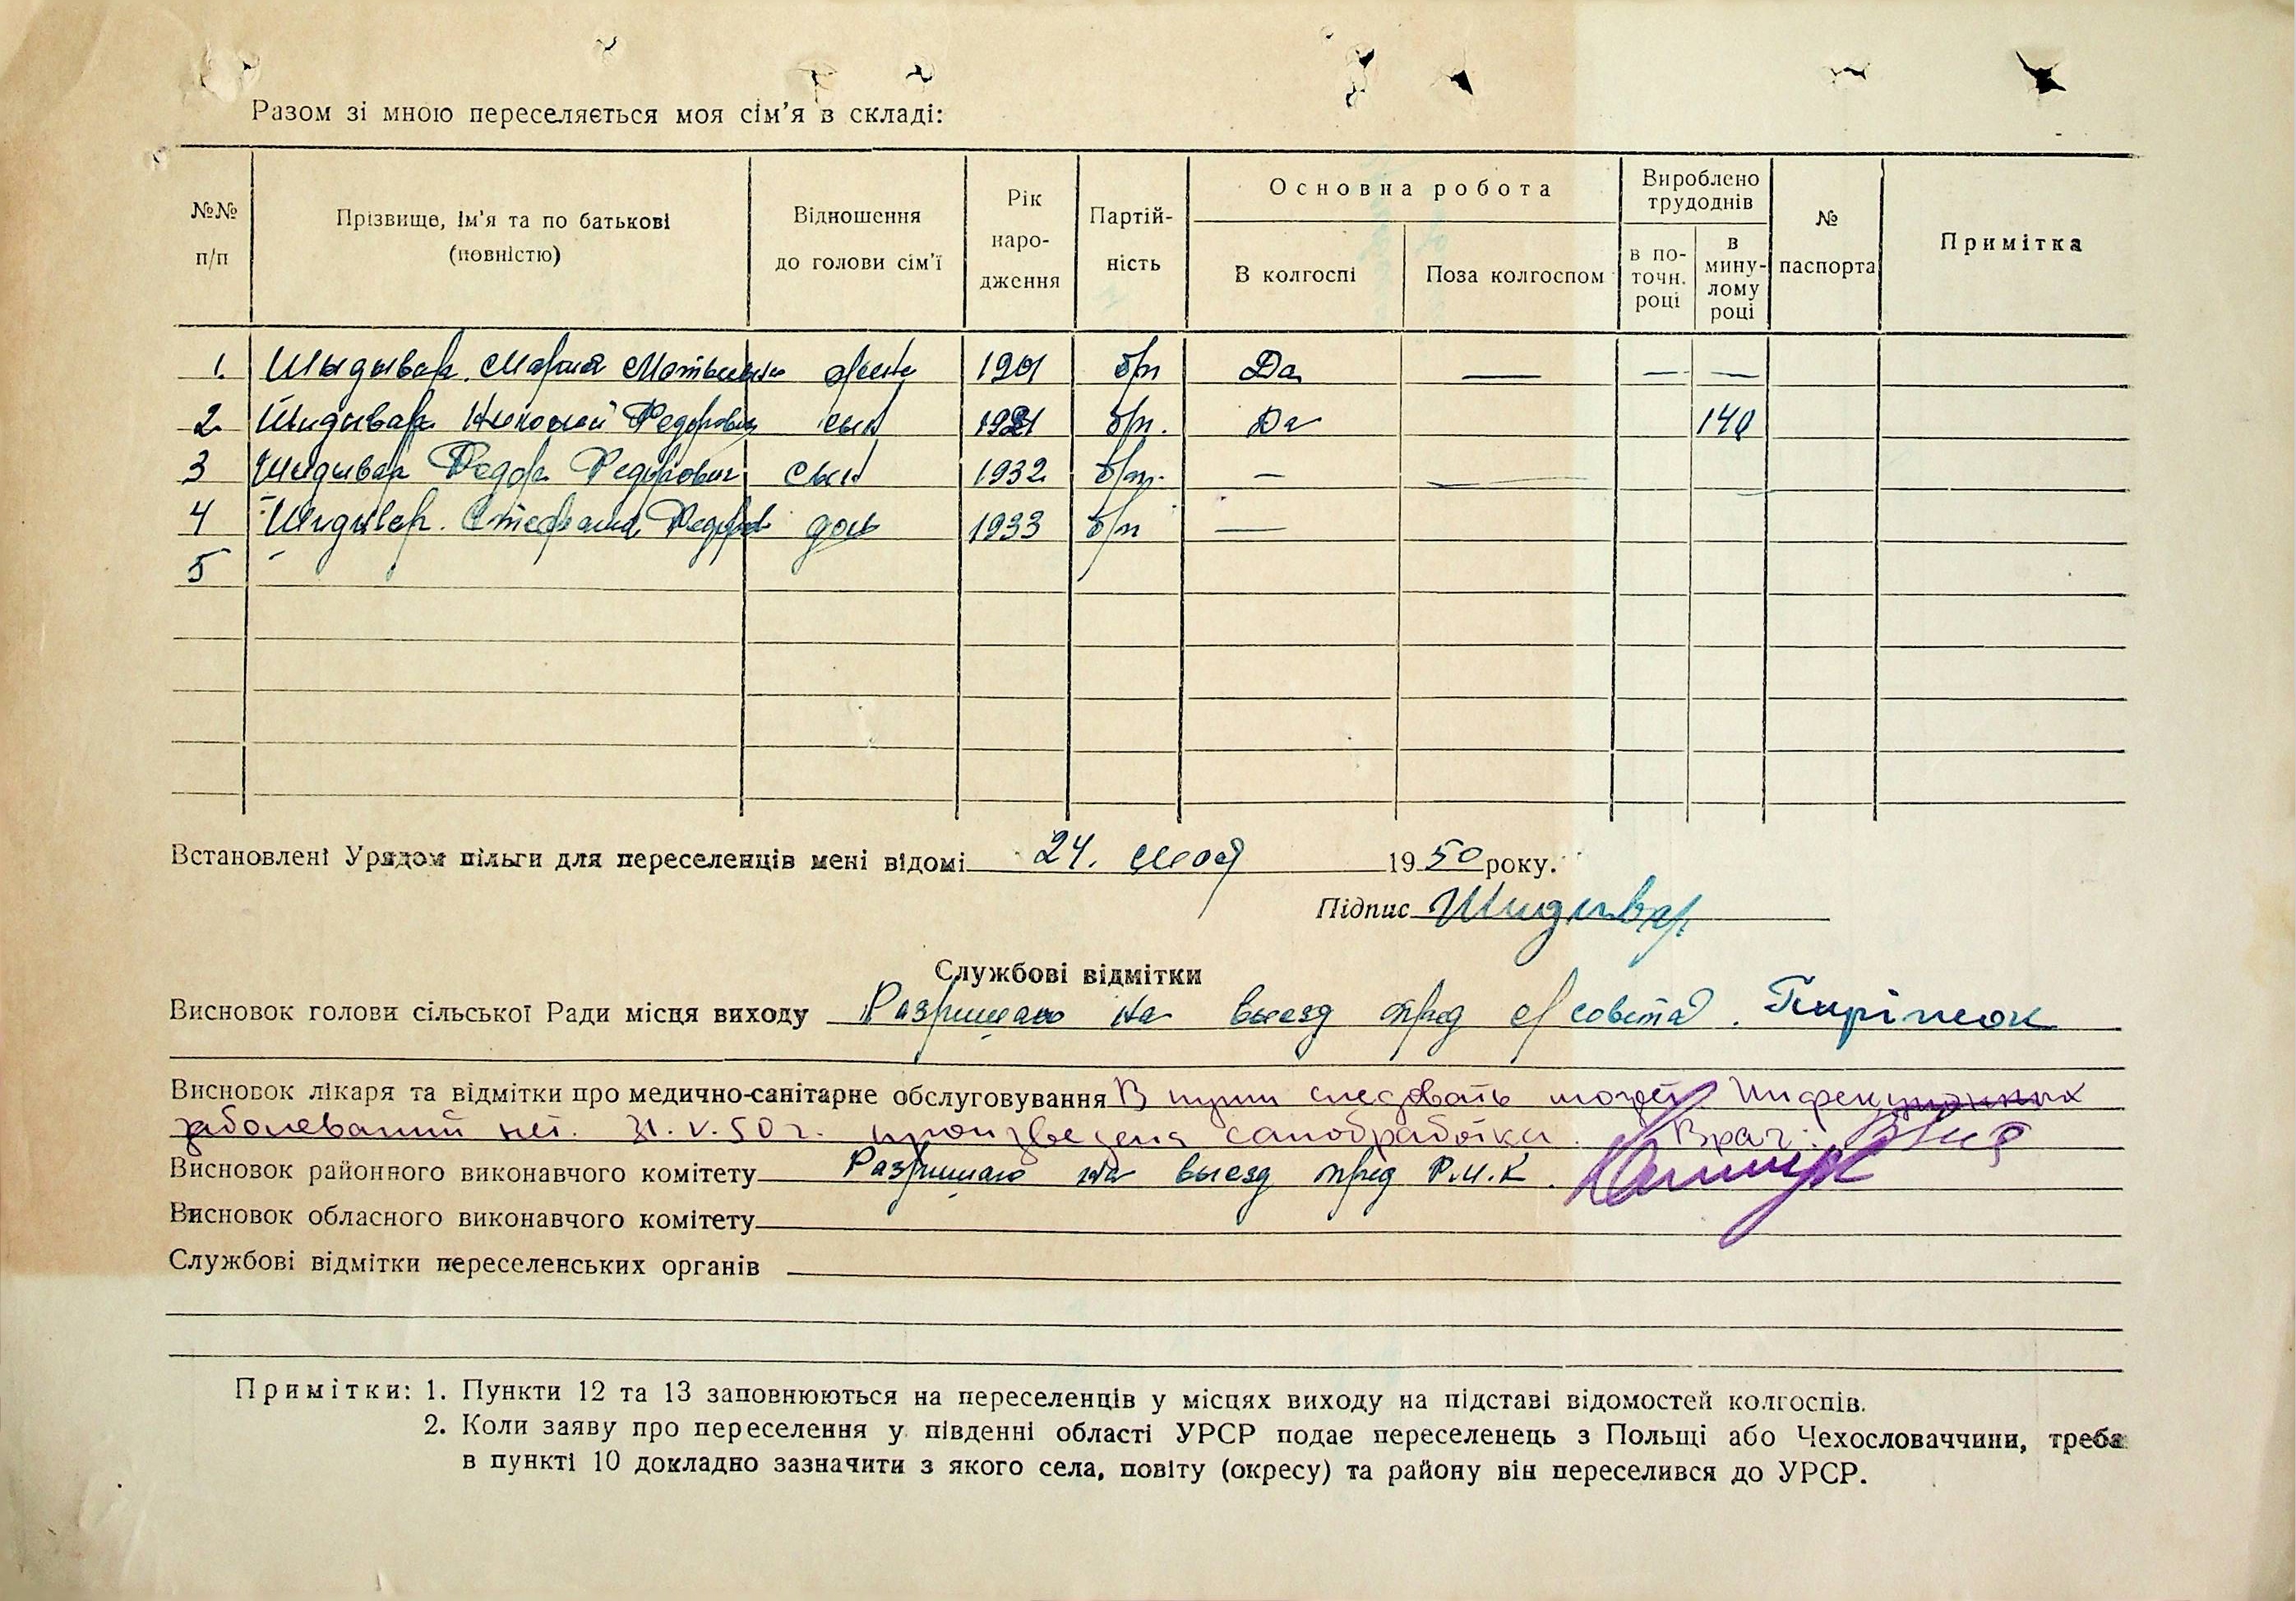 Разом зі мною переселяється моя сім'я в складі:
№№ п/п Прізвище, ім'я та по батькові (повністю) Відношення до голови сім'ї Рік народження Партійність Основна робота В колгоспі Поза колгоспом Вироблено трудоднів в поточн. році в минулому році № паспорта Примітка
1. Шыдывар. Мария жена 1901 б/п Да — — —
2. Шидывар Николай Федорович сын 1921 б/п. Да 140
3 Шидывар Федор Федорович сын 1932 б/п. — —
4 Шидывар. Стефания Федоров дочь 1933 б/п —
5
Встановлені Урядом пільги для переселенців мені відомі 24. мая 1950 року.
Підпис Шидывар
Службові відмітки
Висновок голови сільської Ради місця виходу Разришаю на выезд пред с/совета.
Висновок лікаря та відмітки про медично-санітарне обслуговування В пути следовать может. Инфекционных
заболеваний нет. 31.V.50 г. произведена санобработка. Врач:
Висновок районного виконавчого комітету Разришаю на выезд пред Р.И.К.
Висновок обласного виконавчого комітету
Службові відмітки переселенських органів
Примітки: 1. Пункти 12 та 13 заповнюються на переселенців у місцях виходу на підставі відомостей колгоспів.
2. Коли заяву про переселення у південні області УРСР подає переселенець з Польщі або Чехословаччини, треба
в пункті 10 докладно зазначити з якого села, повіту (окресу) та району він переселився до УРСР.